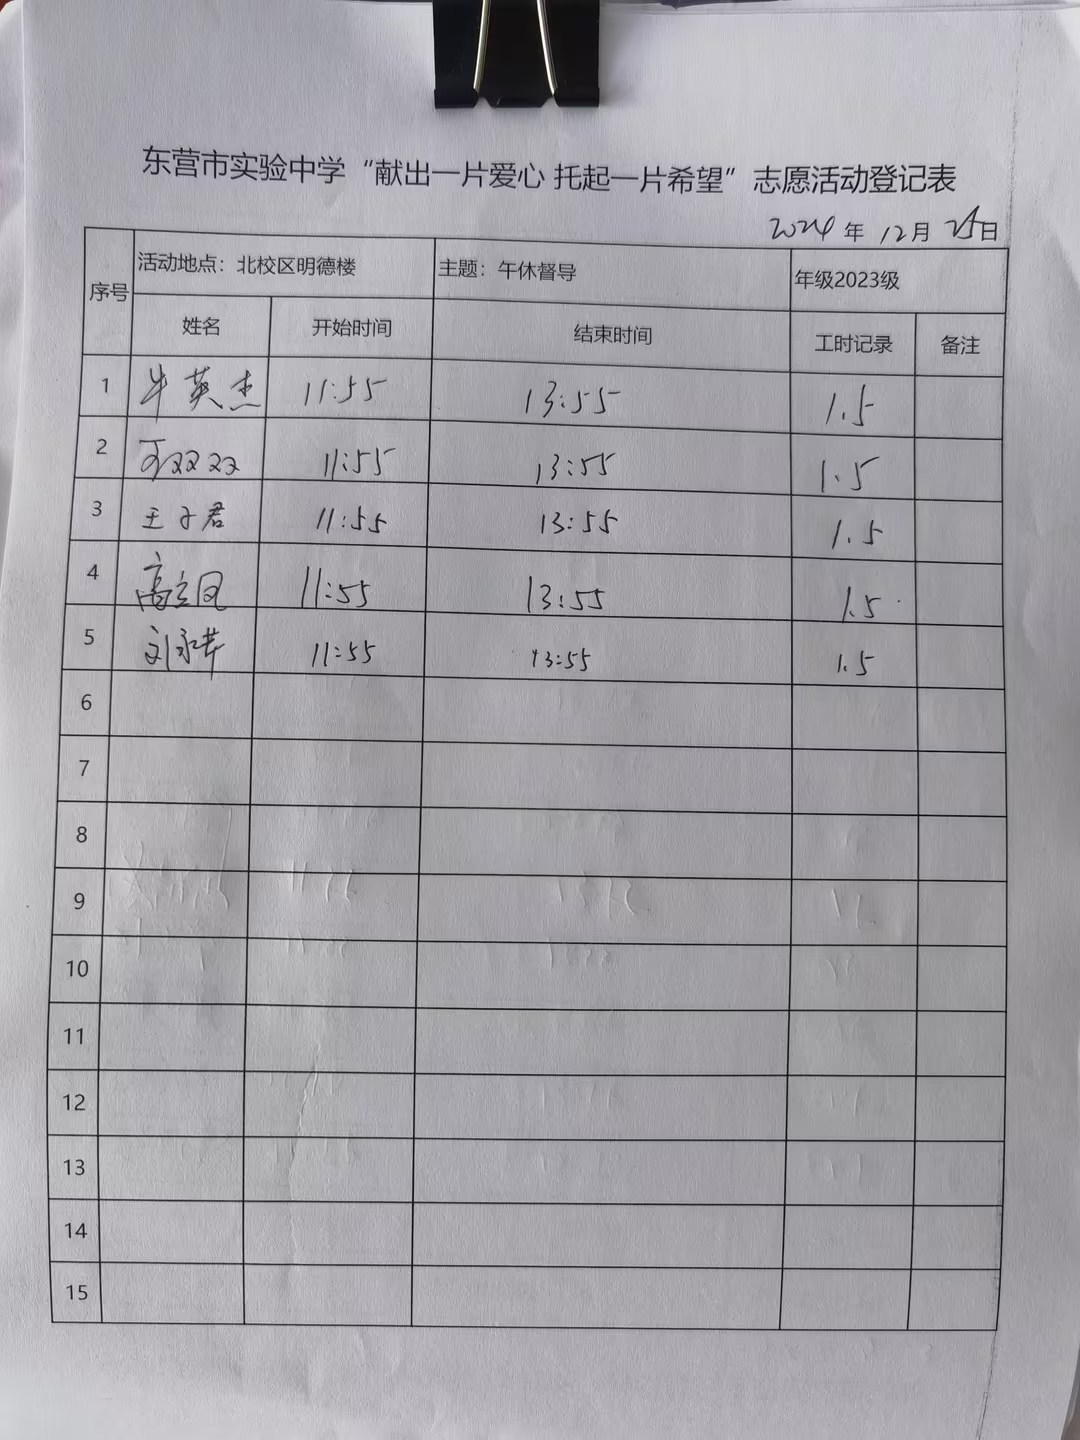 东营市实验中学“献出一片爱心 托起一片希望”志愿活动登记表
2024年12月25日
序号 活动地点：北校区明德楼 主题：午休督导 年级2023级
姓名 开始时间 结束时间 工时记录 备注
1 牛英杰 11:55 13:55 1.5
2 双双 11:55 13:55 1.5
3 王子君 11:55 13:55 1.5
4 高立凤 11:55 13:55 1.5
5 刘永苹 11:55 13:55 1.5
6
7
8
9
10
11
12
13
14
15